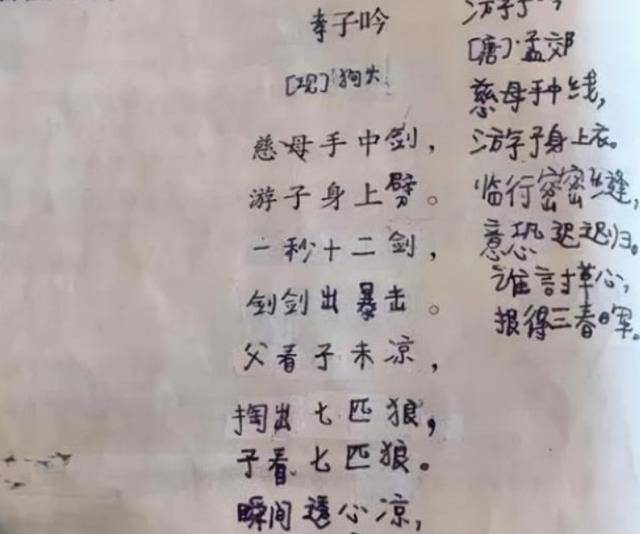 孝子吟
[现] 狗
慈母手中剑，
游子身上劈。
一秒十二剑，
剑剑出暴击。
父看子未凉，
掏出七匹狼，
子看七匹狼。
瞬间透心凉，
游子
[唐]·孟郊
慈母手中线，
游子身上衣。
临行密密缝，
意恐迟迟归。
谁言寸草心，
报得三春晖。